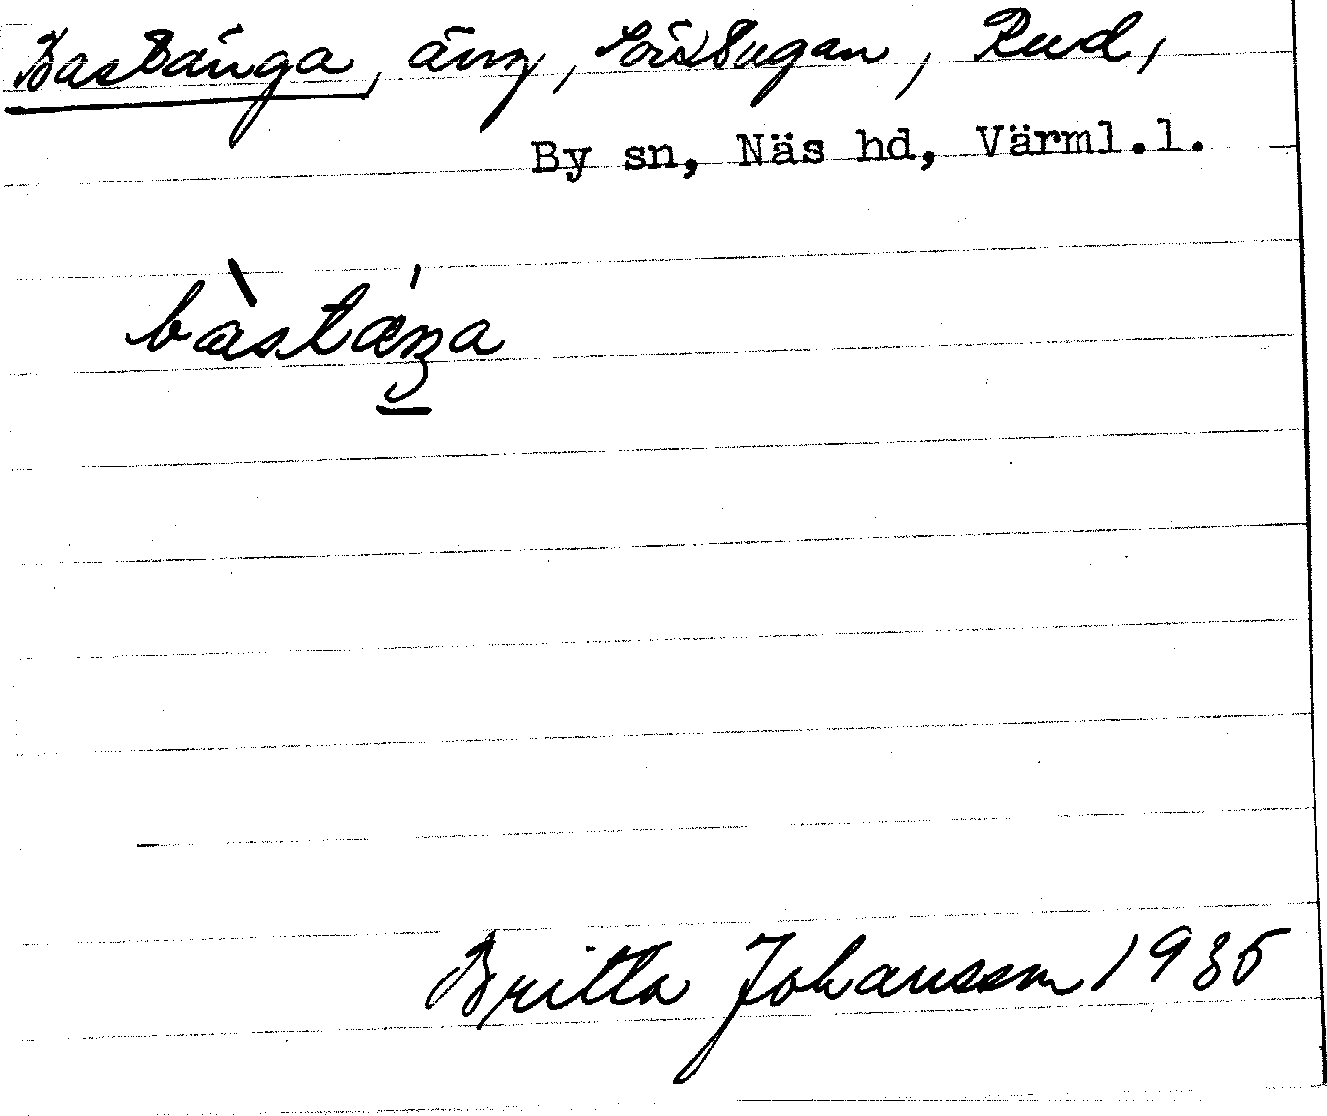 Bastänga, äng, Sörstugan, Rud,
By sn, Näs hd, Värml.l.
bàstáŋa
Britta Johansson 1935